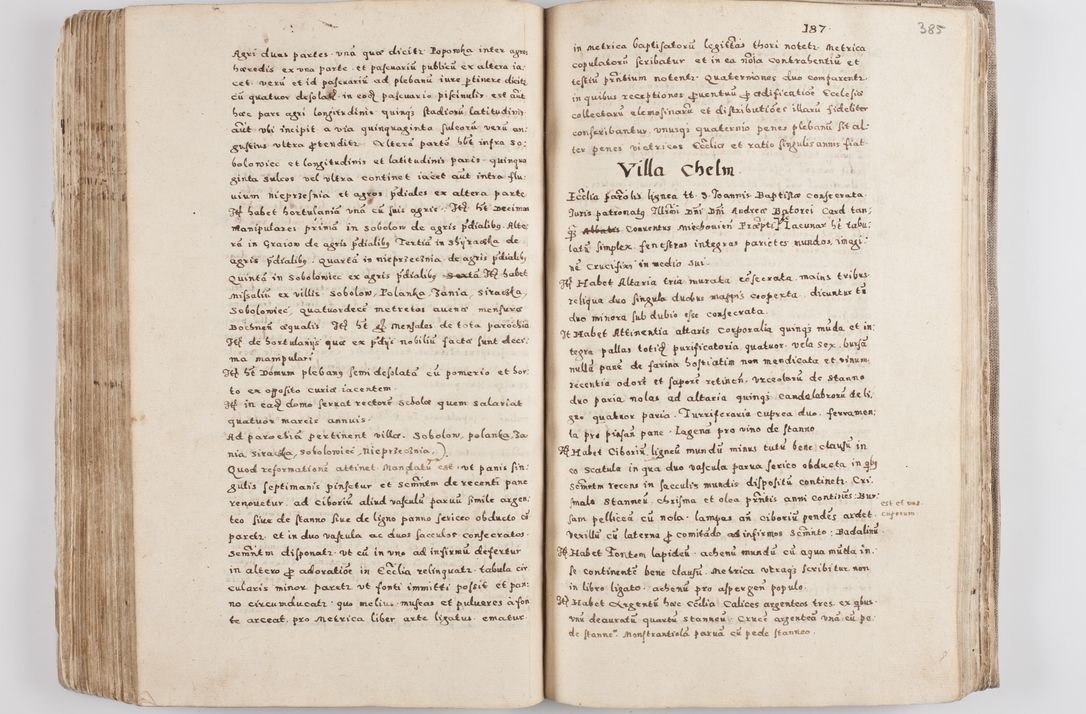 Agri duas partes. unā quæ dicitr Poponska inter agros
hæredis ex una parte et pascuariū publicū ex altera ia-
cet. verū et id pascuariū ad plebanū iure ptinere dicitr
cū quatuor desolatis in eodē pascuario piscinulis. est aūt
hæc pars agri longitrdinis quinqȝ stadiorū latitudinis
aūt ubi incipit a via quinquaginta sulcorū verū an-
gustius ultra ptenditr. Alterā partē hēt infra So-
bolowiec et longitudinis et latitudinis paris. quinqua
ginta sulcos vel ultra continet iacet aūt intra flu-
vium nieprzesnia et agros pdiales ex altera parte
Itȝ habet hortulaniā unā cū suis agris. Itȝ hēt Decimas
Manipulares primā in Sobolow de agris pdialibȝ. Alte-
rā in Graiow de agris pdialibȝ Tertiā in Shÿraczka de
agris pdialibȝ. Quartā in nieprzecznia de agris pdialibȝ
Quintā in Sobolowiec ex agris pdialibȝ Sextā Itȝ habet
missaliū ex villis Sobolow, Polanka, Zania, Siraczka,
Sobolowiec, quatuordecē metretas avenæ mensuræ
Bochnen̄ æqualis Itȝ hēt mensales de tota parochia
Itȝ de hortulanijs quæ ex pdijs nobiliū facta sunt deci-
ma manipulari
Itȝ hēt Domum plebanȝ semi desolatā cū pomerio et hor-
to ex opposito curiæ iacentem.
Itȝ in eadē domo servat rectorē Scholæ quem salariat
quatuor marcis annuis.
Ad parochiā pertinent villæ. Sobolow, polanka, Za-
nia, Siraczka, Sobolowiec, Nieprzecznia.
Quod reformationē attinet. Mandatū est. ut panis sin-
gulis septimanis pinsetur et Scmntm de recenti pane
renovetur. ad Ciboriū aliud vasculū parvū simile argen-
teo sive de stanno sive de ligno panno sericeo obducto cō
paretr. et in duo vascula ac duos sacculos consecratos.
Scmntm disponatr. ut cū in uno ad infirmū defertur
in altero p adoratiōe in Ecclia relinquatr. tabula cir-
cularis minor paretr ut fonti immitti possit et pan-
no circunducatr. quo melius muscas et pulveres à fon-
te arceat. pro Metrica liber arte ligatus. ematur.
187.
385
in metrica baptisatorū legitīas thori notetr. Metrica
copulatorū scribatur et in ea nōia contrahentiū et
testiū pñtium notentr. Quaterniones duo comparentr.
in quibus receptiones pventuū p ædificatiōe Ecclesiæ
collectarū elemosinarū et distributiōes illarū fideliter
conscribantur. unusqȝ quaternio penes plebanū sit al-
ter penes vietricos Eccliæ et ratio singulis annis fiat.
Villa Chelm
Ecclia parōlis lignea tt. S. Joannis Baptistæ consecrata
Iuris patronatȝ Illrmi Dñi Dñi Andreæ Batorei Card. tan-
qȝ Abbatis Conventus Miechovien̄ Præpti. Lacunar hēt tabu-
latū simplex. fenestras integras parietes mundos. imagi-
nē Crucifixi in medio sui.
Itȝ Habet Altaria tria murata cōsecrata. maius tribus
reliqua duo singula duobus mappis cooperta. dicuntur tn̄
duo minora sub dubio esse consecrata.
It Habet Attinentia altaris Corporalia quinqȝ mūda et in-
tegra pallas totidē purificatoria quatuor. vela sex. bursā
nullā panē de farina hostiatim non mendicata et vinum
recentia odorē et sapore retinen̄. Vrceolorū de Stanno
duo paria nolas ad altaria quinqȝ candelabrorū de li-
gno quatuor paria. Turriferaria cuprea duo. ferramen-
ta pro pinsen̄ pane. Lagenā pro vino de stanno.
Itȝ Habet Ciboriū ligneū mundū minus tutū bene clausū in
eo Scatula in qua duo vascula parva serico obducta in qbȝ
Scmntm recens in sacculis mundis dispositū continetr. Cri-
smale Stanneū, chrisma et olea pñtis anni continēs. Bur-
sam pelliceā cū nola. lampas an̄ ciboriū pendēs ardet.
Vexillū cū laterna p comitādo ad infirmos Scmnto. Badalinū
est et vas
cupreum
Itȝ Habet Fontem lapideū. achenū mundū cū aqua mūda in
se continentē bene clausū. Metrica utraqȝ scribitur non
in libro ligato. achenū pro aspergen̄ populo.
Itȝ Habet Argentū hæc Ecclia. Calices argenteos tres ex qbus
unū deauratū quartū stanneū. Crucē argenteā unā cū pe-
de stanneo. Monstrantiolā parvā cū pede stanneo.